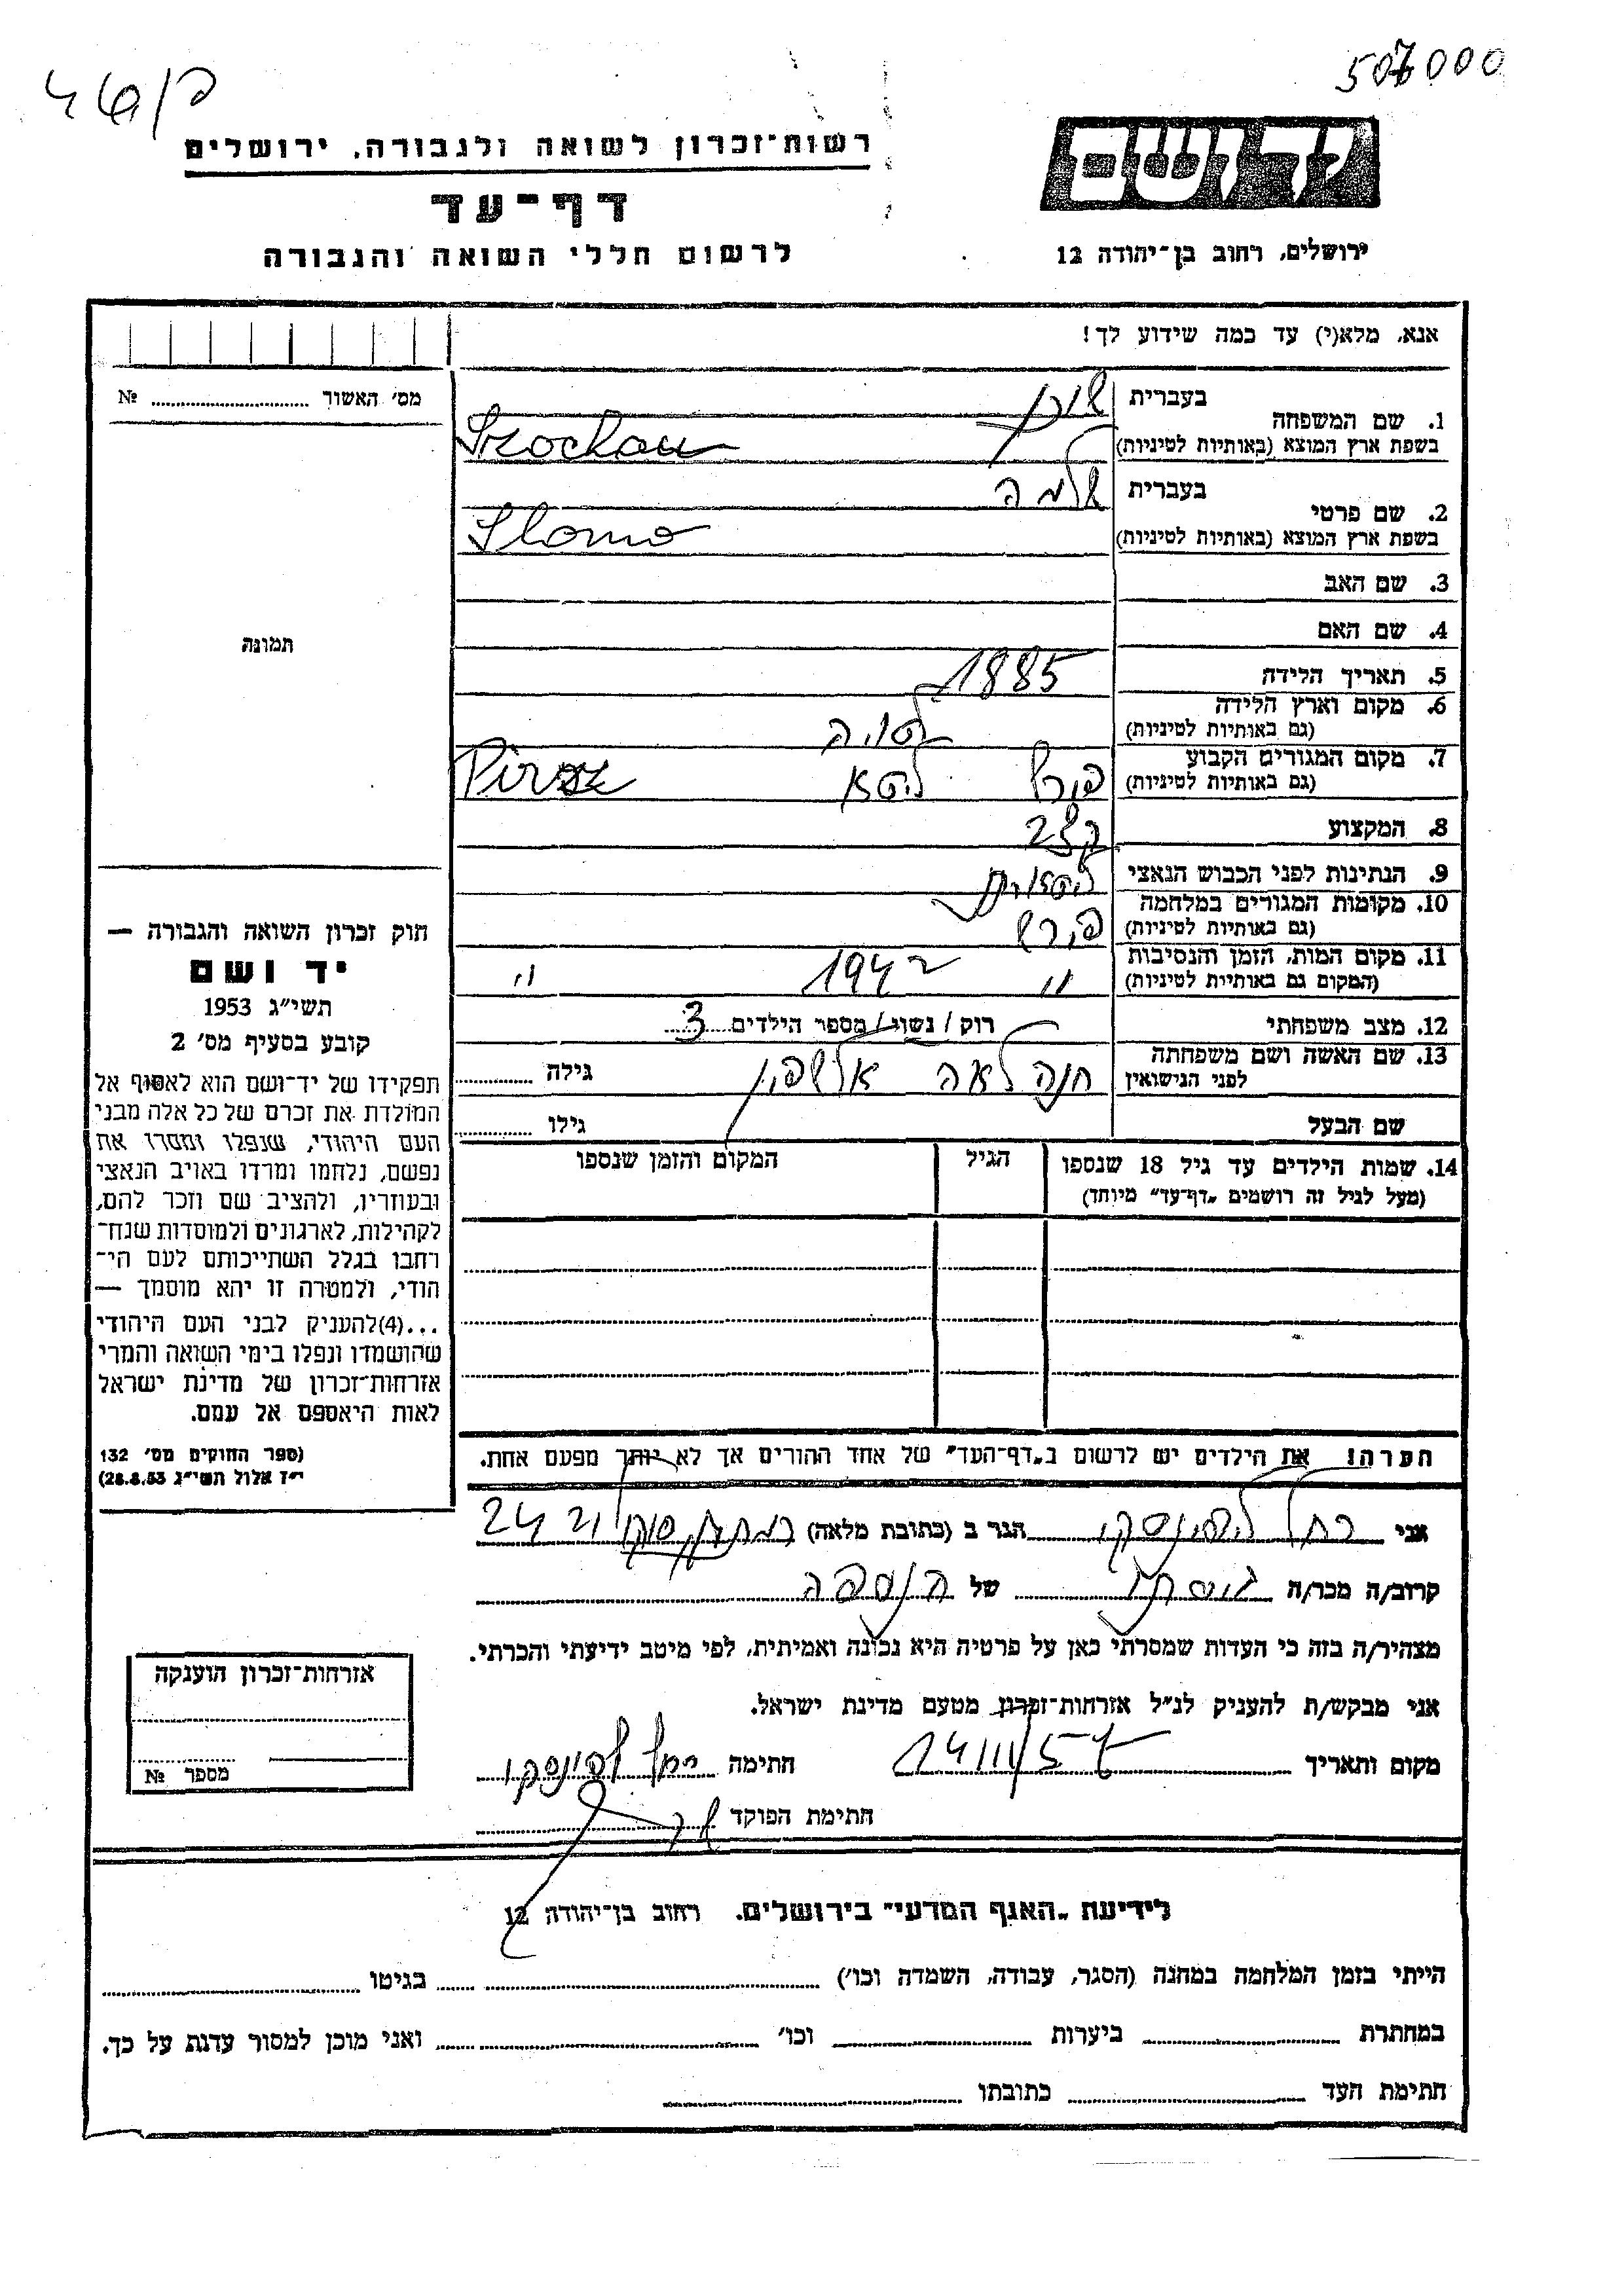 507000
רשות־זכרון לשואה ולגבורה, ירושלים
יד ושם
דף־עד
לרשום חללי השואה והגבורה
ירושלים, רחוב בן־יהודה 12
אנא, מלא(י) עד כמה שידוע לך!
מס׳ האשור № 
1. שם המשפחה בעברית
בשפת ארץ המוצא (באותיות לטיניות) Szochau
2. שם פרטי בעברית שלמה
בשפת ארץ המוצא (באותיות לטיניות) Slomo
3. שם האב
4. שם האם
תמונה
5. תאריך הלידה 1885
6. מקום וארץ הלידה
(גם באותיות לטיניות)
7. מקום המגורים הקבוע
(גם באותיות לטיניות)
8. המקצוע קצב
9. הנתינות לפני הכבוש הנאצי
10. מקומות המגורים במלחמה
(גם באותיות לטיניות)
11. מקום המות, הזמן והנסיבות
(המקום גם באותיות לטיניות) " 1942 "
12. מצב משפחתי רוק / נשוי / מספר הילדים 3
13. שם האשה ושם משפחתה
לפני הנישואין חנה לאה גילה
שם הבעל גילו
14. שמות הילדים עד גיל 18 שנספו
(מעל לגיל זה רושמים „דף־עד״ מיוחד)
הגיל
המקום והזמן שנספו
חוק זכרון השואה והגבורה —
יד ושם
תשי״ג 1953
קובע בסעיף מס׳ 2
תפקידו של יד־ושם הוא לאסוף אל
המולדת את זכרם של כל אלה מבני
העם היהודי, שנפלו ומסרו את
נפשם, נלחמו ומרדו באויב הנאצי
ובעוזריו, ולהציב שם וזכר להם,
לקהילות, לארגונים ולמוסדות שנח־
רחבו בגלל השתייכותם לעם הי־
הודי, ולמטרה זו יהא מוסמך —
...(4)להעניק לבני העם היהודי
שהושמדו ונפלו בימי השואה והמרי
אזרחות־זכרון של מדינת ישראל
לאות היאספם אל עמם.
(ספר החוקים מס׳ 132
י״ז אלול תשי״ג 28.8.53)
הערה! את הילדים יש לרשום ב„דף־העד״ של אחד ההורים אך לא יותר מפעם אחת.
אני רחל הגר ב (כתובת מלאה) 24 21
קרוב/ה מכר/ה של הנספה
מצהיר/ה בזה כי העדות שמסרתי כאן על פרטיה היא נכונה ואמיתית, לפי מיטב ידיעתי והכרתי.
אני מבקש/ת להעניק לנ״ל אזרחות־זכרון מטעם מדינת ישראל.
מקום ותאריך 14/III/57 חתימה רחל
חתימת הפוקד
אזרחות־זכרון הוענקה
מספר №
לידיעת „האגף המדעי״ בירושלים. רחוב בן־יהודה 12
הייתי בזמן המלחמה במחנה (הסגר, עבודה, השמדה וכו׳) בגיטו
במחתרת ביערות וכו׳ ואני מוכן למסור עדות על כך.
חתימת העד כתובתו